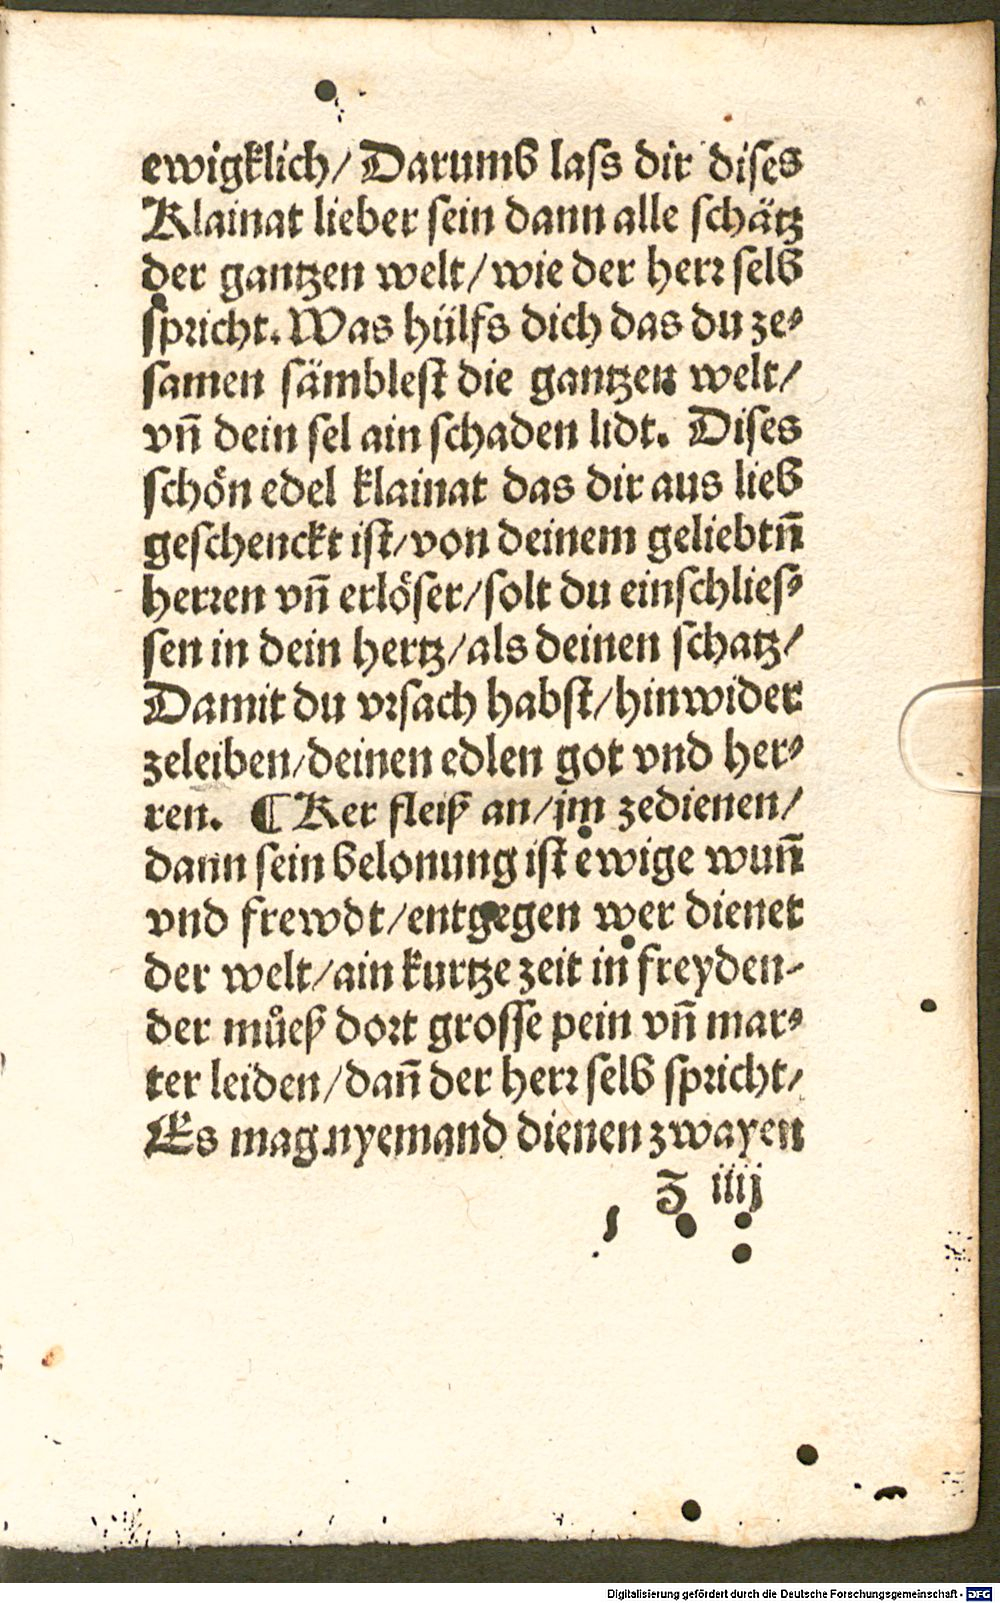 ewigklich/ Darumb lass dir dises
Klainat lieber sein dann alle schätz
der gantzen welt/ wie der herr selb
spricht. Was hülfs dich das du ze⸗
samen sämblest die gantzen welt/
vn̄ dein sel ain schaden lidt. Dises
schön edel klainat das dir aus lieb
geschenckt ist/ von deinem geliebtn̄
herren vn̄ erlöser/ solt du einschlies⸗
sen in dein hertz/ als deinen schatz/
Damit du vrsach habst/ hinwider
zeleiben/ deinen edlen got vnd her⸗
ren. ¶ Ker fleiß an/ jm zedienen/
dann sein belonung ist ewige wun̄
vnd frewdt/ entgegen wer dienet
der welt/ ain kurtze zeit in freyden-
der můeß dort grosse pein vn̄ mar⸗
ter leiden/ dan̄ der herr selb spricht/
Es mag nyemand dienen zwayen
Z iiij
Digitalisierung gefördert durch die Deutsche Forschungsgemeinschaft - DFG